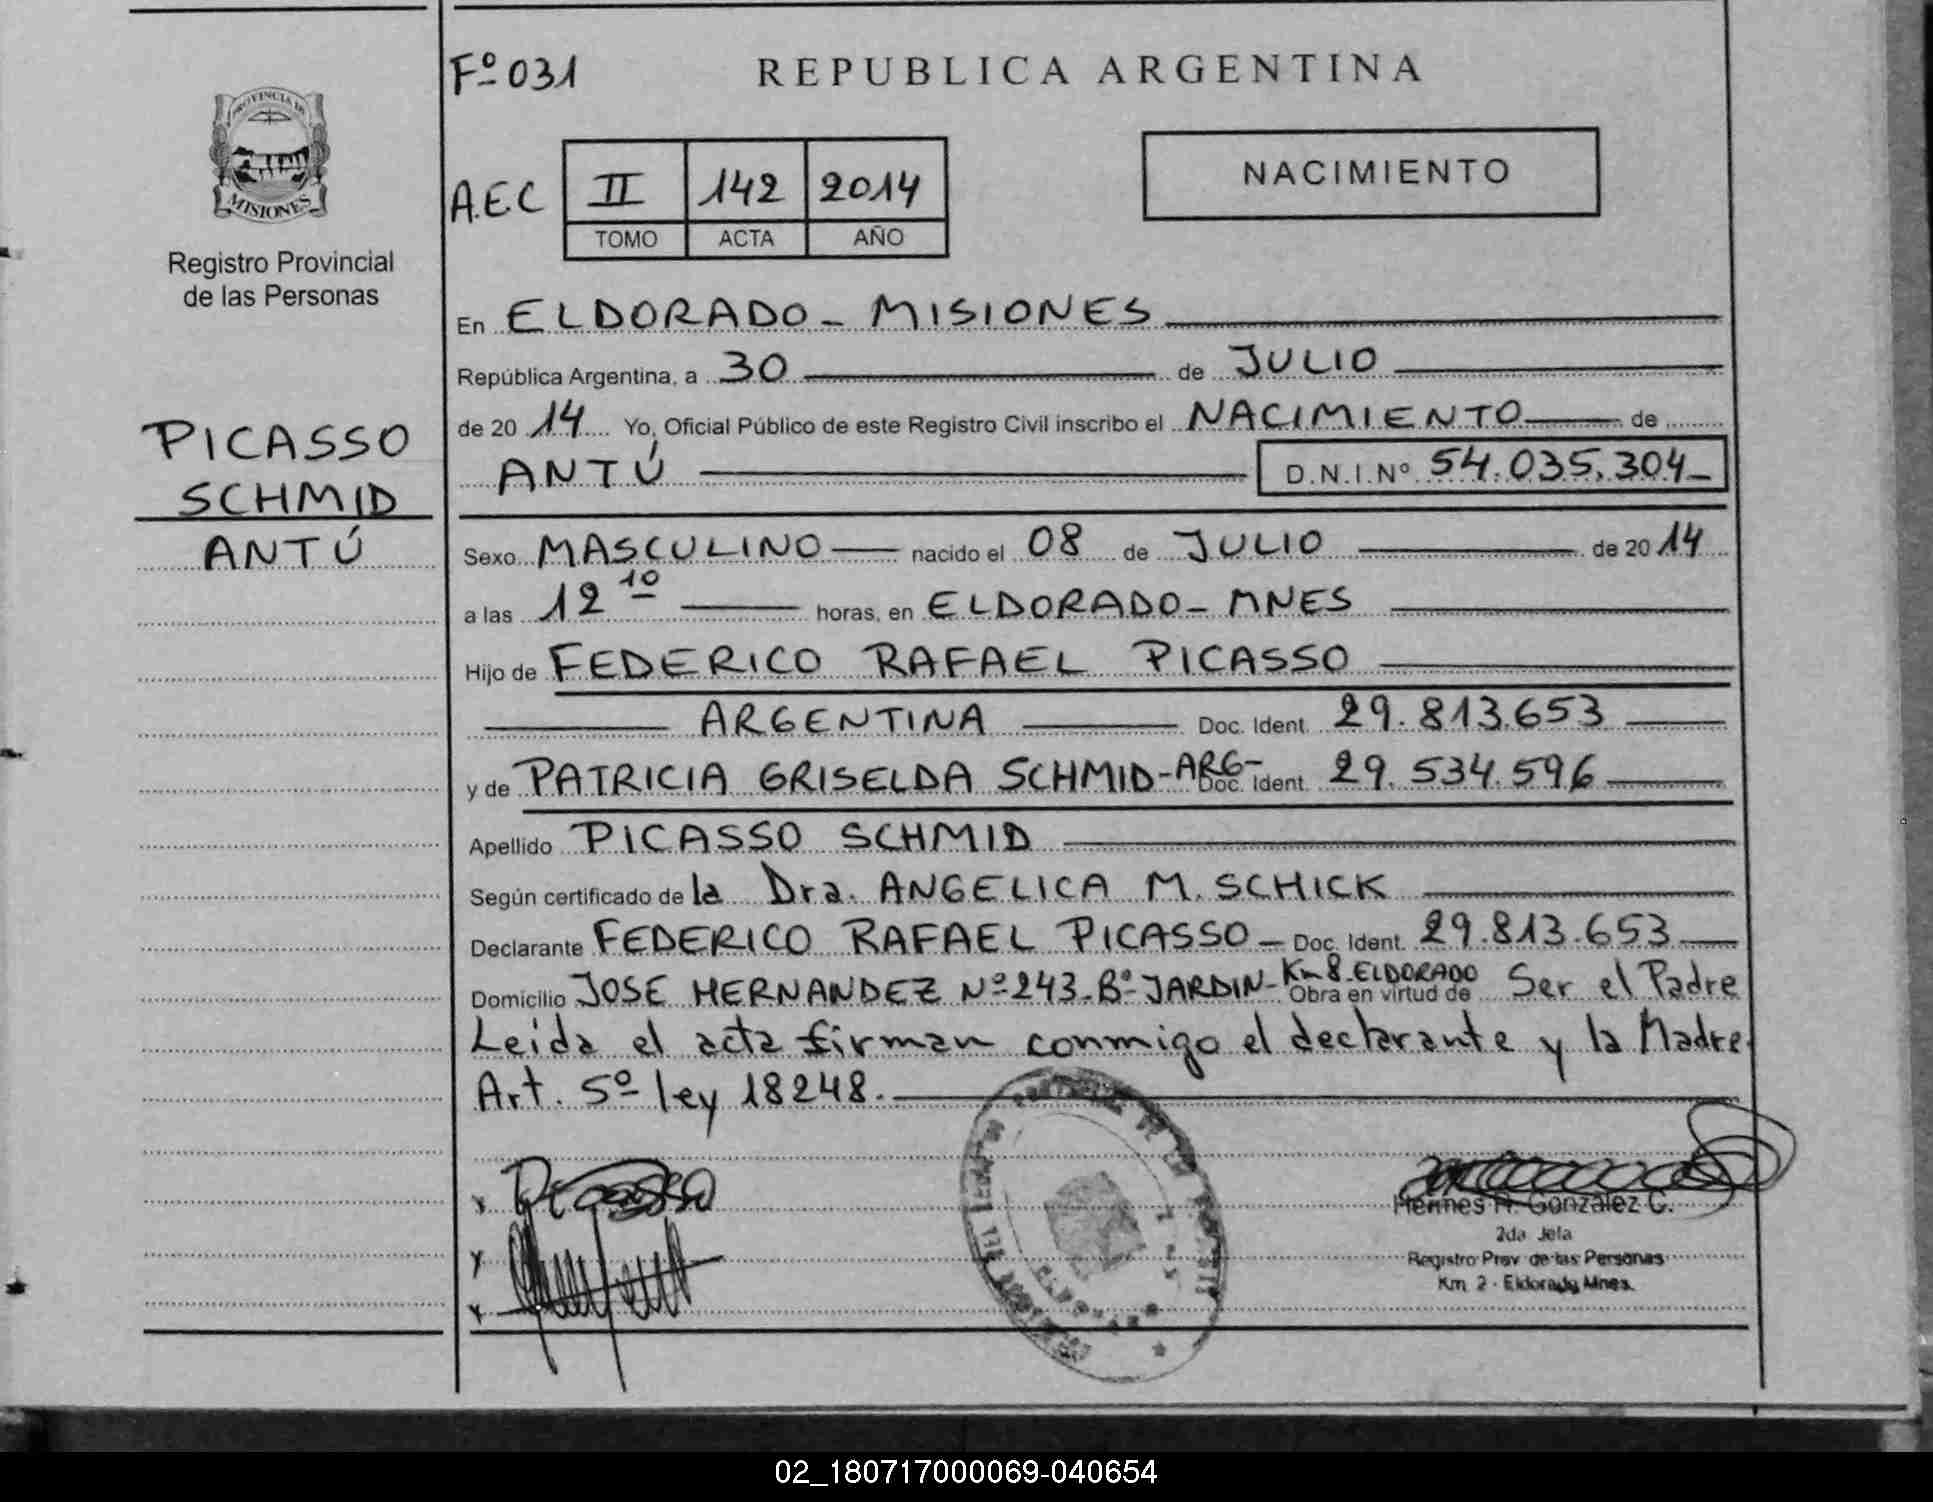 Fº 031
REPUBLICA ARGENTINA
PROVINCIA DE
MISIONES
Registro Provincial
de las Personas
A.E.C
II 142 2014
TOMO ACTA AÑO
NACIMIENTO
PICASSO
SCHMID
ANTÚ
En ELDORADO - MISIONES
República Argentina, a 30 de JULIO
de 20 14 Yo, Oficial Público de este Registro Civil inscribo el NACIMIENTO de
ANTÚ D.N.I.Nº 54.035.304
Sexo MASCULINO nacido el 08 de JULIO de 20 14
a las 12 10 horas, en ELDORADO - MNES
Hijo de FEDERICO RAFAEL PICASSO
ARGENTINA Doc. Ident. 29.813.653
y de PATRICIA GRISELDA SCHMID - ARG - Doc. Ident. 29.534.596
Apellido PICASSO SCHMID
Según certificado de la Dra. ANGELICA M. SCHICK
Declarante FEDERICO RAFAEL PICASSO - Doc. Ident. 29.813.653
Domicilio JOSE HERNANDEZ Nº 243 - Bº JARDIN - Km 8 - ELDORADO Obra en virtud de Ser el Padre
Leida el acta firman conmigo el declarante y la Madre
Art. 5º ley 18248.
Picasso
Hermes R. Gonzalez C.
2da Jefa
Registro Prov de las Personas
Km 2 - Eldorado Mnes.
02_180717000069-040654